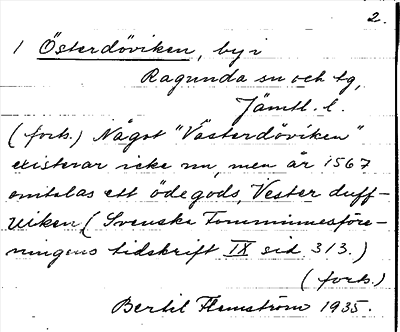 2.
1 Österdöviken, by i
Ragunda sn och tg,
Jämtl. l.
(forts.) Något "Västerdöviken"
existerar icke nu, men år 1567
omtalas ett ödegods, Vester duff-
viken (Svenska Fornminnesföre-
ningens tidskrift IX sid. 313.)
(forts.)
Bertil Flemström 1935.